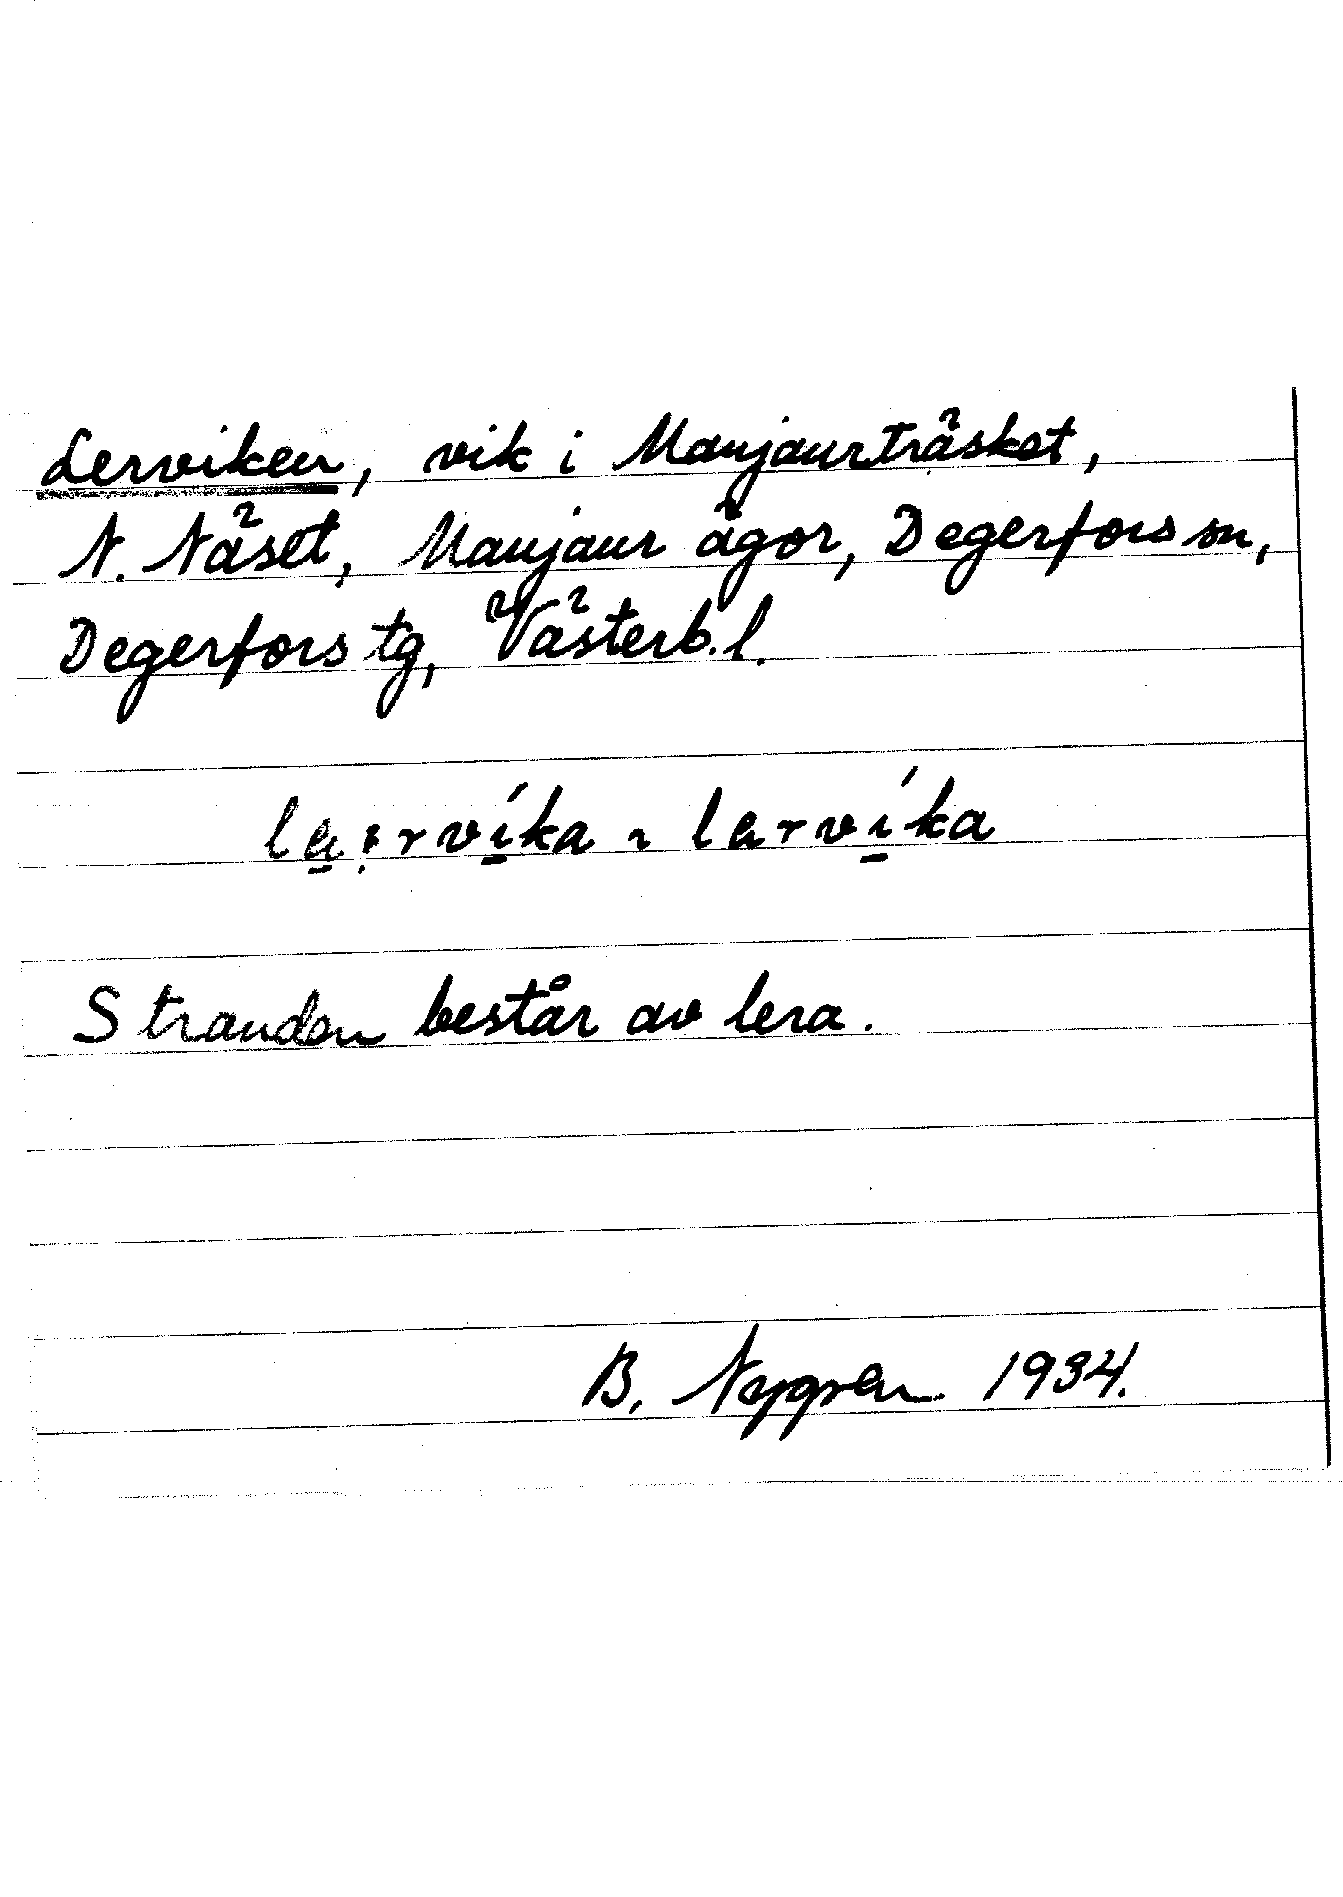 Lerviken, vik i Manjaurträsket,
N. Näset, Manjaur ägor, Degerfors sn,
Degerfors tg, Västerb. l.
Stranden består av lera.
B. Nygren 1934.